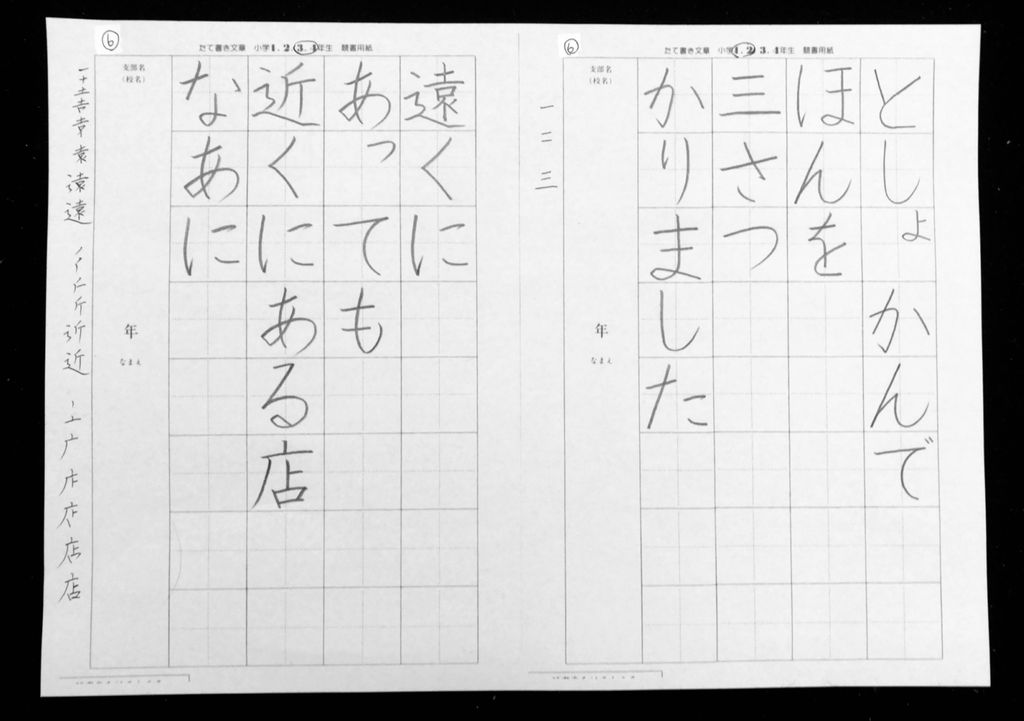 ⑥
たて書き文章 小学1.2.3.4年生 競書用紙
支部名
(校名)
としょかんで
ほんを
三さつ
かりました
年
なまえ
一
二
三
⑥
たて書き文章 小学1.2.3.4年生 競書用紙
支部名
(校名)
遠くに
あっても
近くにある店
なあに
年
なまえ